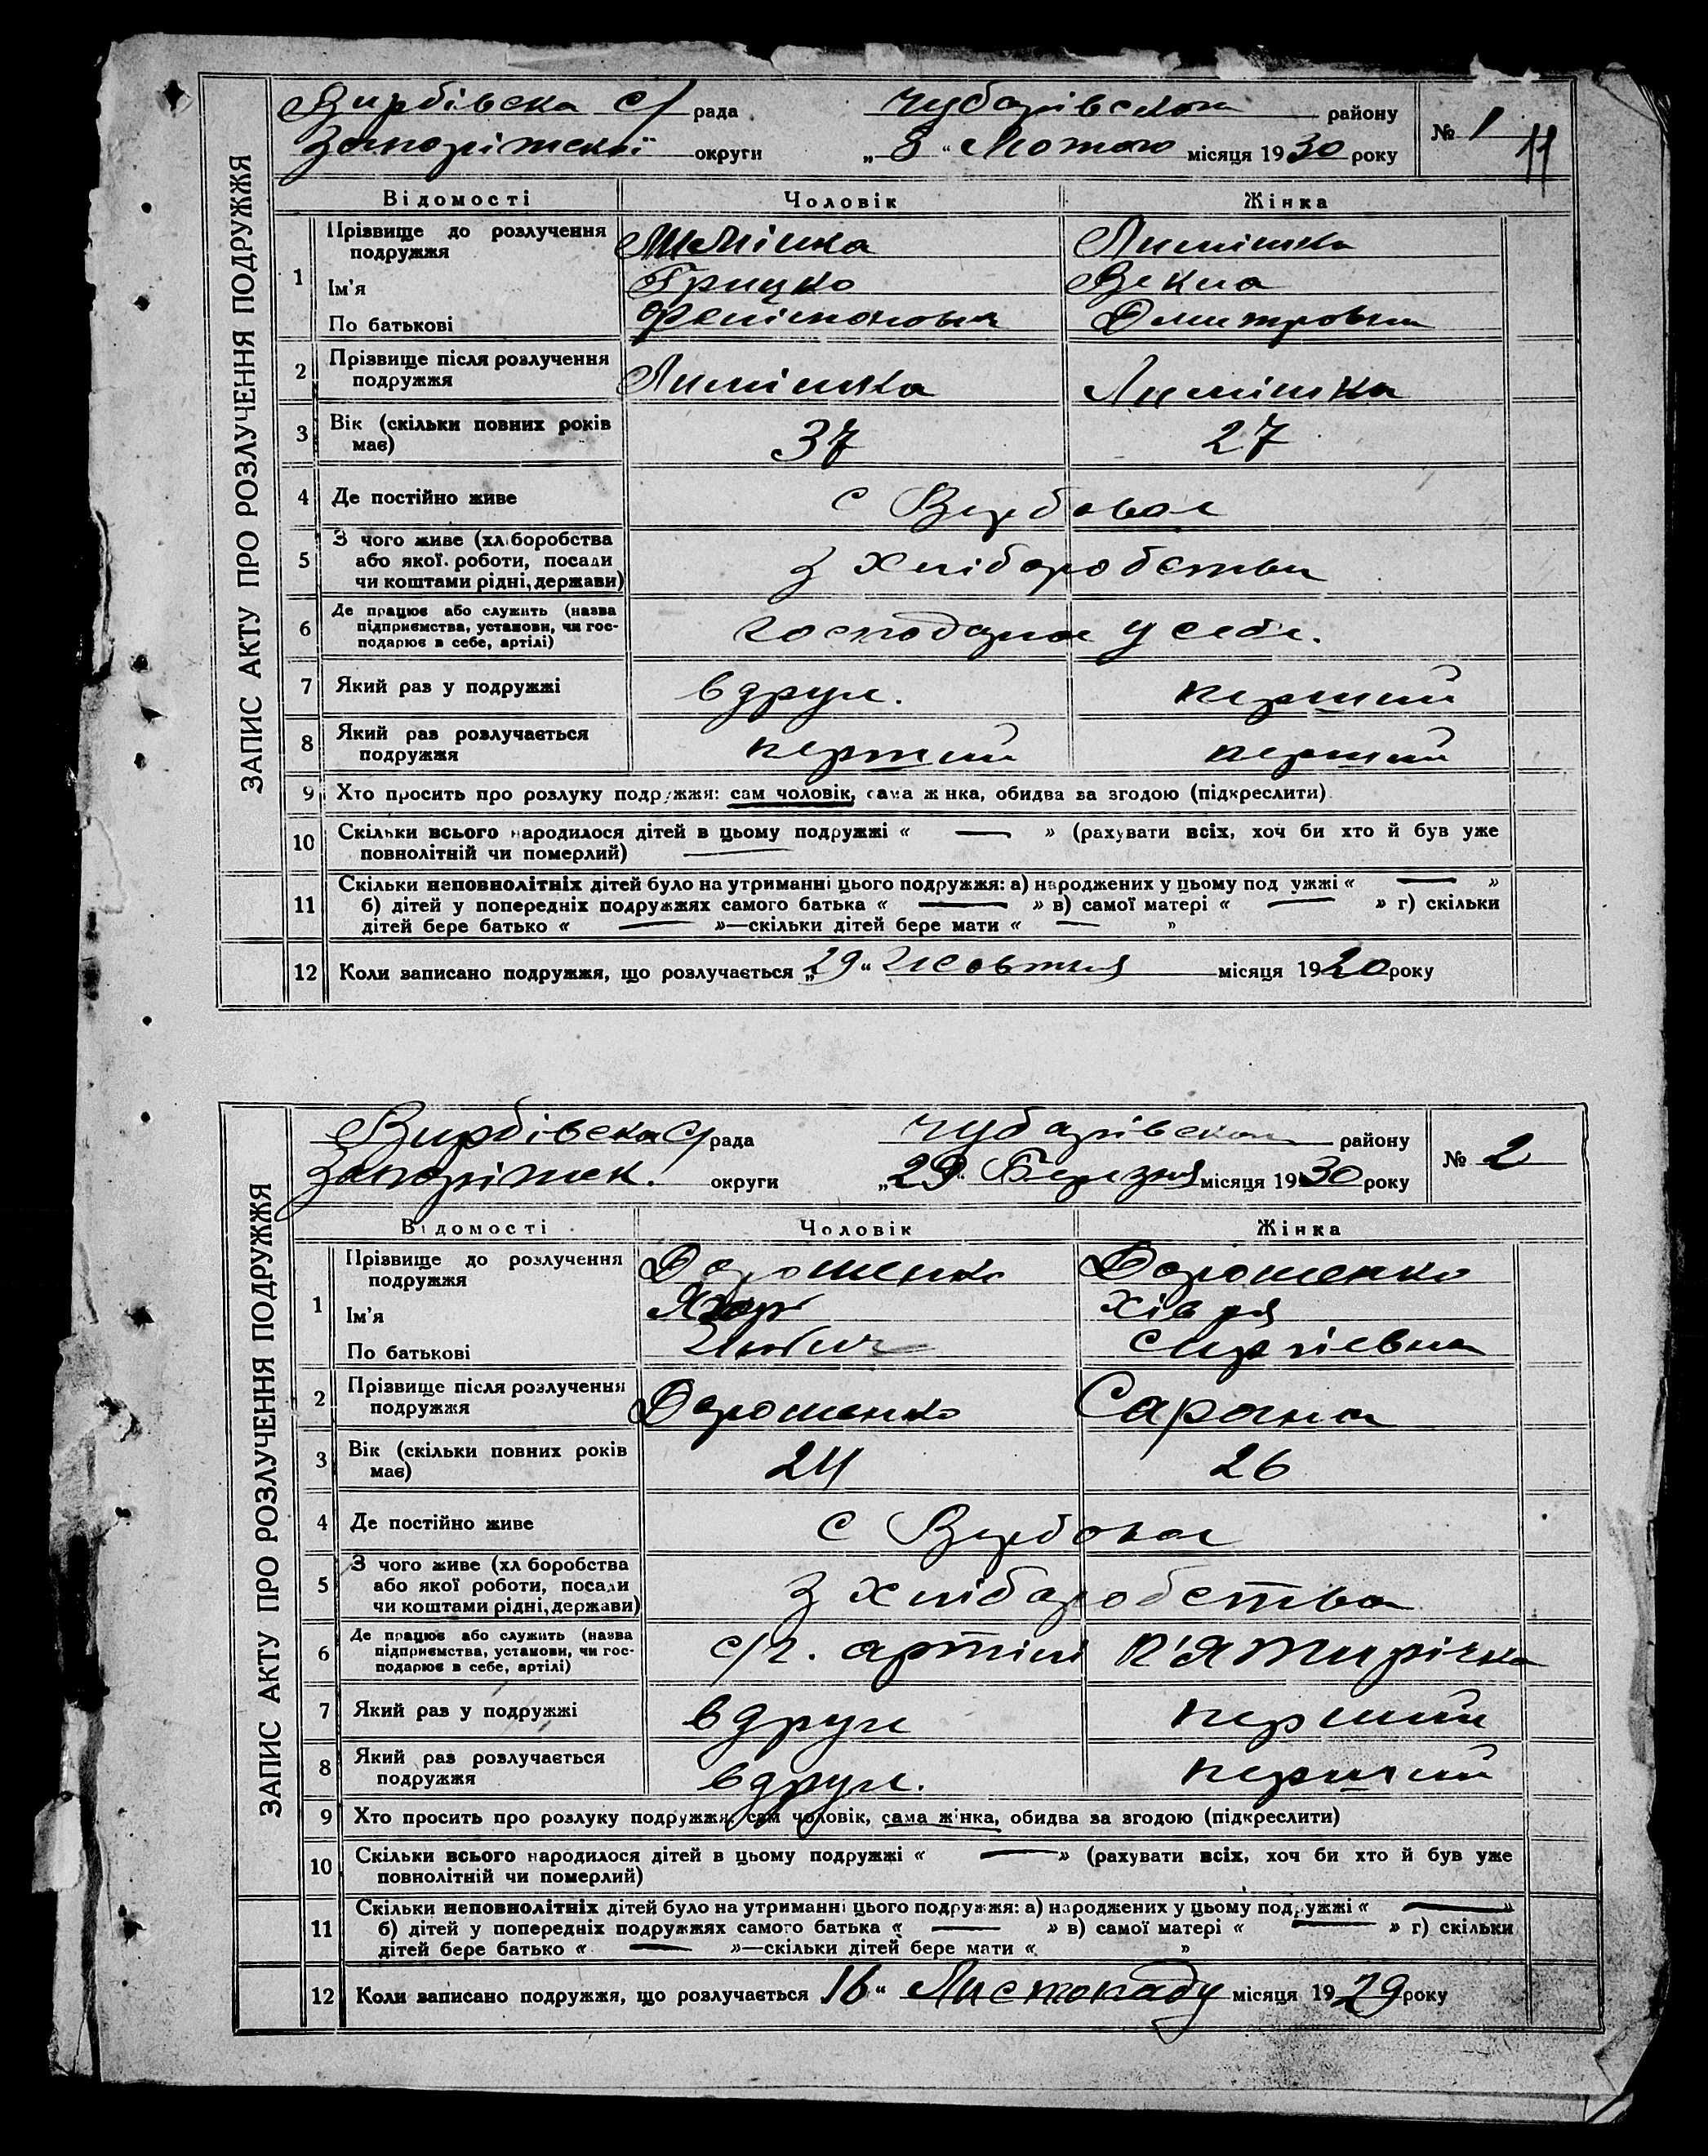 ЗАПИС АКТУ ПРО РОЗЛУЧЕННЯ ПОДРУЖЖЯ
Вирбівска с/ рада Чубарівском району № 1
Запоріжскої округи „ 8 “ Лютого місяця 1930 року 11
Відомості Чоловік Жінка
1 Прізвище до розлучення подружжя Лимішка Лимішка
Ім'я Грицко Векла
По батькові Дмитровна
2 Прізвище після розлучення подружжя Лимішка Лимішка
3 Вік (скільки повних років має) 37 27
4 Де постійно живе с Вербовое
5 З чого живе (хліборобства або якої роботи, посади чи коштами рідні, держави) з хліборобства
6 Де працює або служить (назва підприємства, установи, чи господарює в себе, артілі) господарює у себе.
7 Який раз у подружжі вдруге. перший
8 Який раз розлучається подружжя перший перший
9 Хто просить про розлуку подружжя: сам чоловік, сама жінка, обидва за згодою (підкреслити)
10 Скільки всього народилося дітей в цьому подружжі « — » (рахувати всіх, хоч би хто й був уже
повнолітній чи померлий)
11 Скільки неповнолітніх дітей було на утриманні цього подружжя: а) народжених у цьому подружжі « — »
б) дітей у попередніх подружжях самого батька « — » в) самої матері « — » г) скільки
дітей бере батько « — »—скільки дітей бере мати « — »
12 Коли записано подружжя, що розлучається „29“ Жовтня місяця 1920 року
ЗАПИС АКТУ ПРО РОЗЛУЧЕННЯ ПОДРУЖЖЯ
Вирбівска с/ рада Чубарівском району № 2
Запоріжск. округи „29“ Березня місяця 1930 року
Відомості Чоловік Жінка
1 Прізвище до розлучення подружжя Дорошенко Дорошенко
Ім'я Хівря
По батькові Сиргіевна
2 Прізвище після розлучення подружжя Дорошенко Сарана
3 Вік (скільки повних років має) 24 26
4 Де постійно живе с Вербовое
5 З чого живе (хліборобства або якої роботи, посади чи коштами рідні, держави) з хліборобства
6 Де працює або служить (назва підприємства, установи, чи господарює в себе, артілі) с/г. артілі П'ятирічка
7 Який раз у подружжі вдруге перший
8 Який раз розлучається подружжя вдруге. перший
9 Хто просить про розлуку подружжя: сам чоловік, сама жінка, обидва за згодою (підкреслити)
10 Скільки всього народилося дітей в цьому подружжі « — » (рахувати всіх, хоч би хто й був уже
повнолітній чи померлий)
11 Скільки неповнолітніх дітей було на утриманні цього подружжя: а) народжених у цьому подружжі « — »
б) дітей у попередніх подружжях самого батька « — » в) самої матері « — » г) скільки
дітей бере батько « — »—скільки дітей бере мати « »
12 Коли записано подружжя, що розлучається 16 “ Листопаду місяця 1929 року